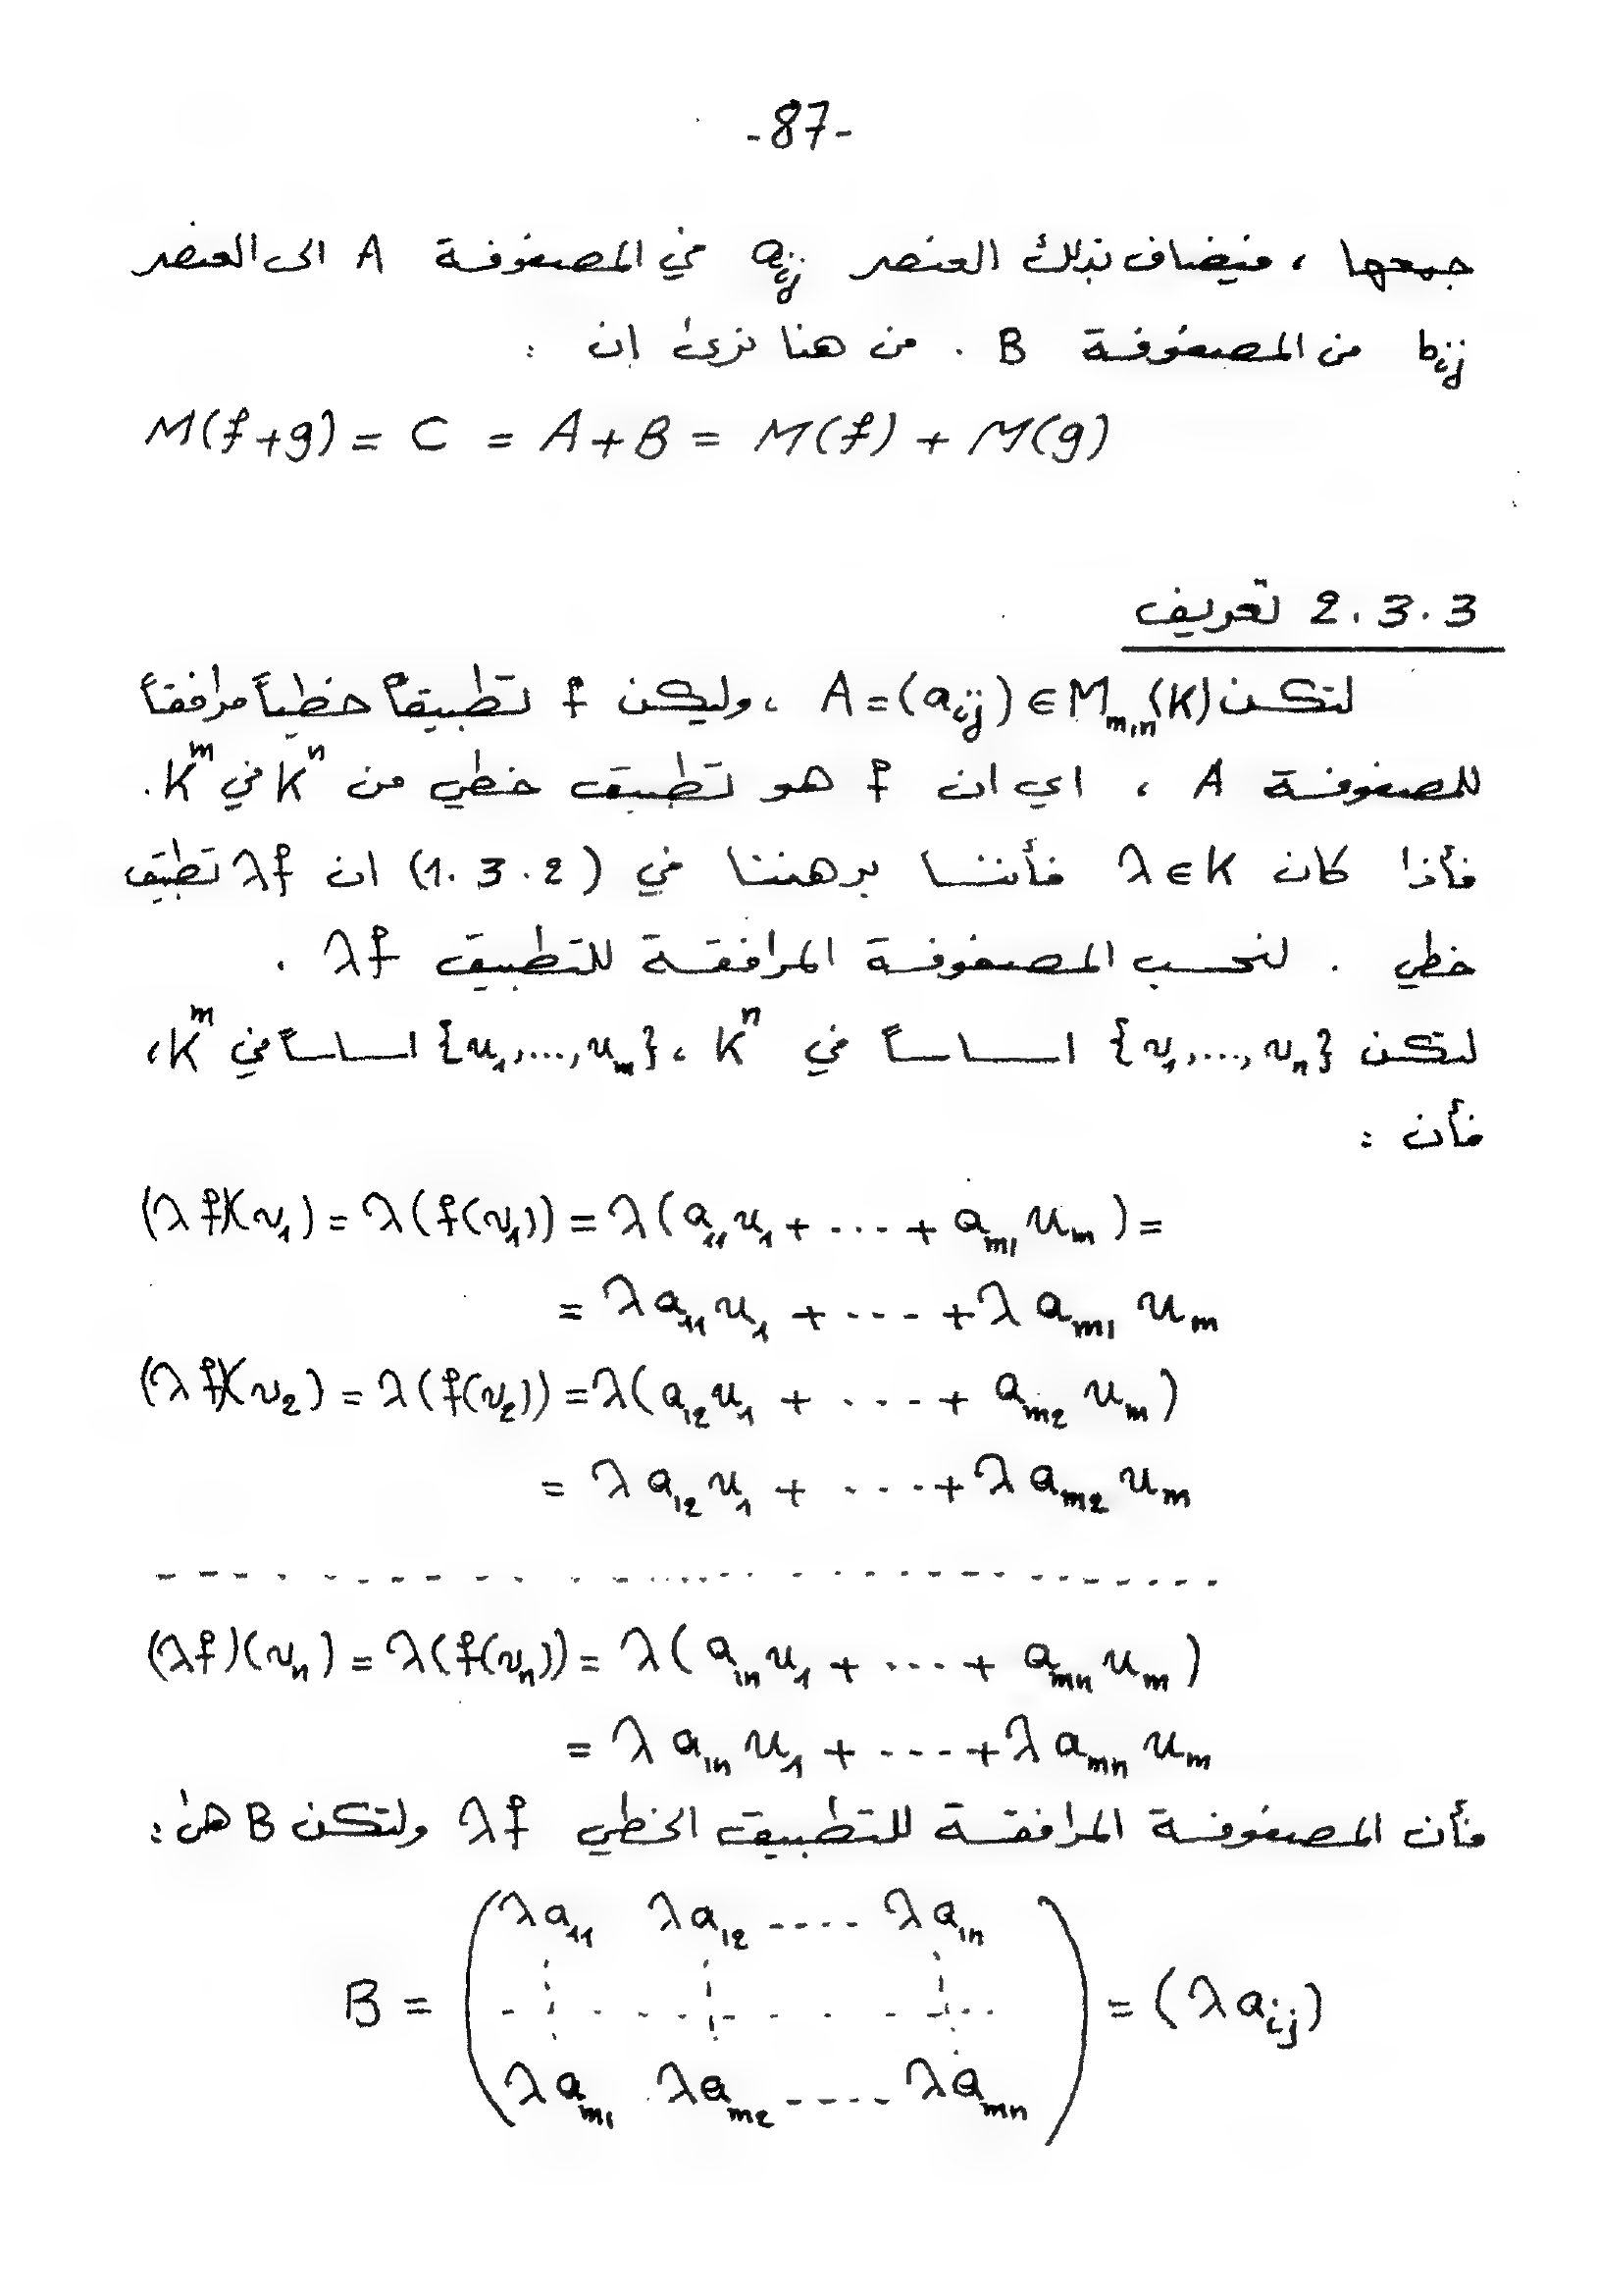 -87-
جمعها ، فيضاف بذلك العنصر aij في المصفوفة A الى العنصر
bij من المصفوفة B . من هنا نرى ان :
M(f+g) = C = A+B = M(f) + M(g)
2.3.3 تعريف
لتكن A=(aij)∈Mm,n(K) ، وليكن f تطبيقاً خطياً مرافقاً
للمصفوفة A ، اي ان f هو تطبيق خطي من Kⁿ في Kᵐ .
فأذا كان λ∈K فأننا برهننا في (1.3.2) ان λf تطبيق
خطي . لنحسب المصفوفة المرافقة للتطبيق λf .
لتكن {v₁,...,vn} اساساً في Kⁿ ، {u₁,...,um} اساساً في Kᵐ ،
فأن :
(λf)(v₁) = λ(f(v₁)) = λ(a₁₁u₁ + ---- + am1 um) =
= λa₁₁u₁ + ---- + λ am1 um
(λf)(v₂) = λ(f(v₂)) = λ(a₁₂u₁ + ---- + am2 um)
= λ a₁₂u₁ + ---- + λ am2 um
- - - - - - - - - - - - - - - - - - - -
(λf)(vn) = λ(f(vn)) = λ(a1n u₁ + ---- + amn um)
= λ a1n u₁ + ---- + λ amn um
فأن المصفوفة المرافقة للتطبيق الخطي λf ولتكن B هى :
B = ( λa₁₁ λa₁₂ ---- λa1n
λam1 λam2 ---- λamn ) = (λaij)